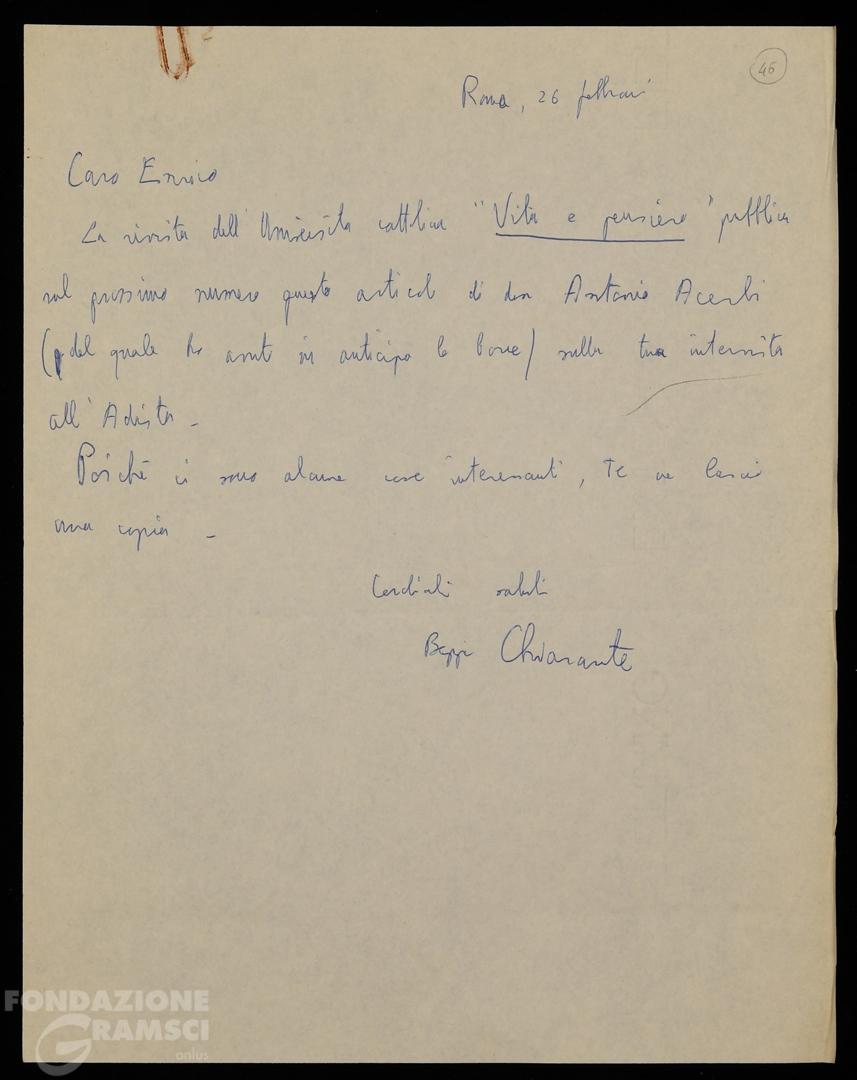 46
Roma, 26 febbraio
Caro Enrico
La rivista dell'Università cattolica "Vita e pensiero" pubblica
sul prossimo numero questo articolo di don Antonio Acerbi
(del quale ho avuto in anticipo le bozze) sulla tua intervista
all'Adista -
Poiché ci sono alcune cose interessanti, te ne lascio
una copia -
Cordiali saluti
Beppe Chiarante
FONDAZIONE
GRAMSCI
onlus